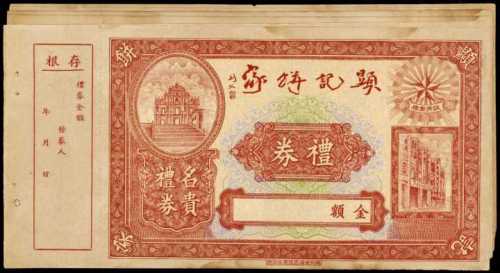 存根
禮券金額
年 月 日
顯記餅家
顯記餅家
禮券
名貴
禮券
金額